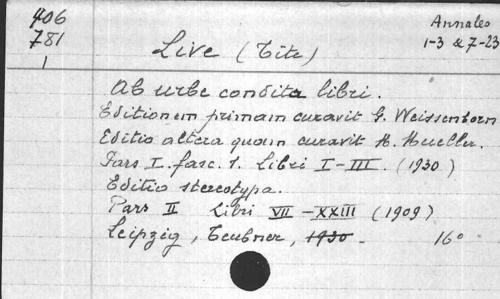 406
781
1
Annales
1-3 & 7-23
Live (Tite)
Ab urbe condita libri.
Editionem primam curavit G. Weissenborn
Editio altera quam curavit M. Mueller.
Pars I. fasc. 1. Libri I-III. (1930)
Editio stereotypa.
Pars II Libri VII - XXIII (1909)
Leipzig, Teubner, 1930. 16°